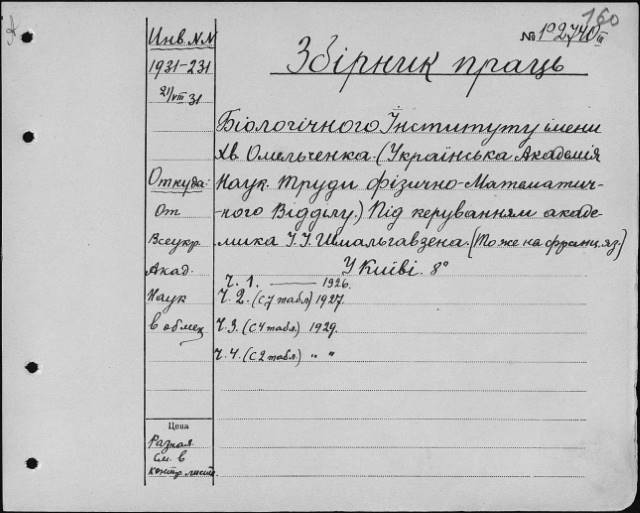 160
№ 102740 III
Инв. N.N
1931-231
21/VIII 31
Збірник праць
Біологічного Інституту імени
Хв. Омельченка. (Українська Академія
Наук. Труди фізично-Математич-
-ного Відділу.) Під керуванням акаде-
мика І.І. Шмальгавзена. (То же на франц. яз.)
У Київі. 8°
Ч. 1. —— 1926.
Ч. 2. (С 7 табл) 1927.
Ч. 3. (С 4 табл.) 1929.
Ч. 4. (С 2 табл.) " "
Откуда:
От
Всеукр.
Акад.
Наук
в обмен
Цена
Разная
См. в
контр. листе.